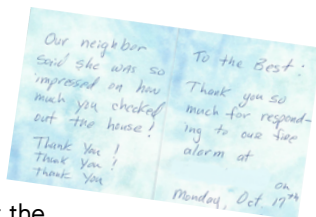 Our neighbor
said she was so
impressed on how
much you checked
out the house!
Thank You!
thank you!
thank you
To the Best:
Thank you so
much for respond-
ing to our fire
alarm at
on
Monday, Oct. 17th
the